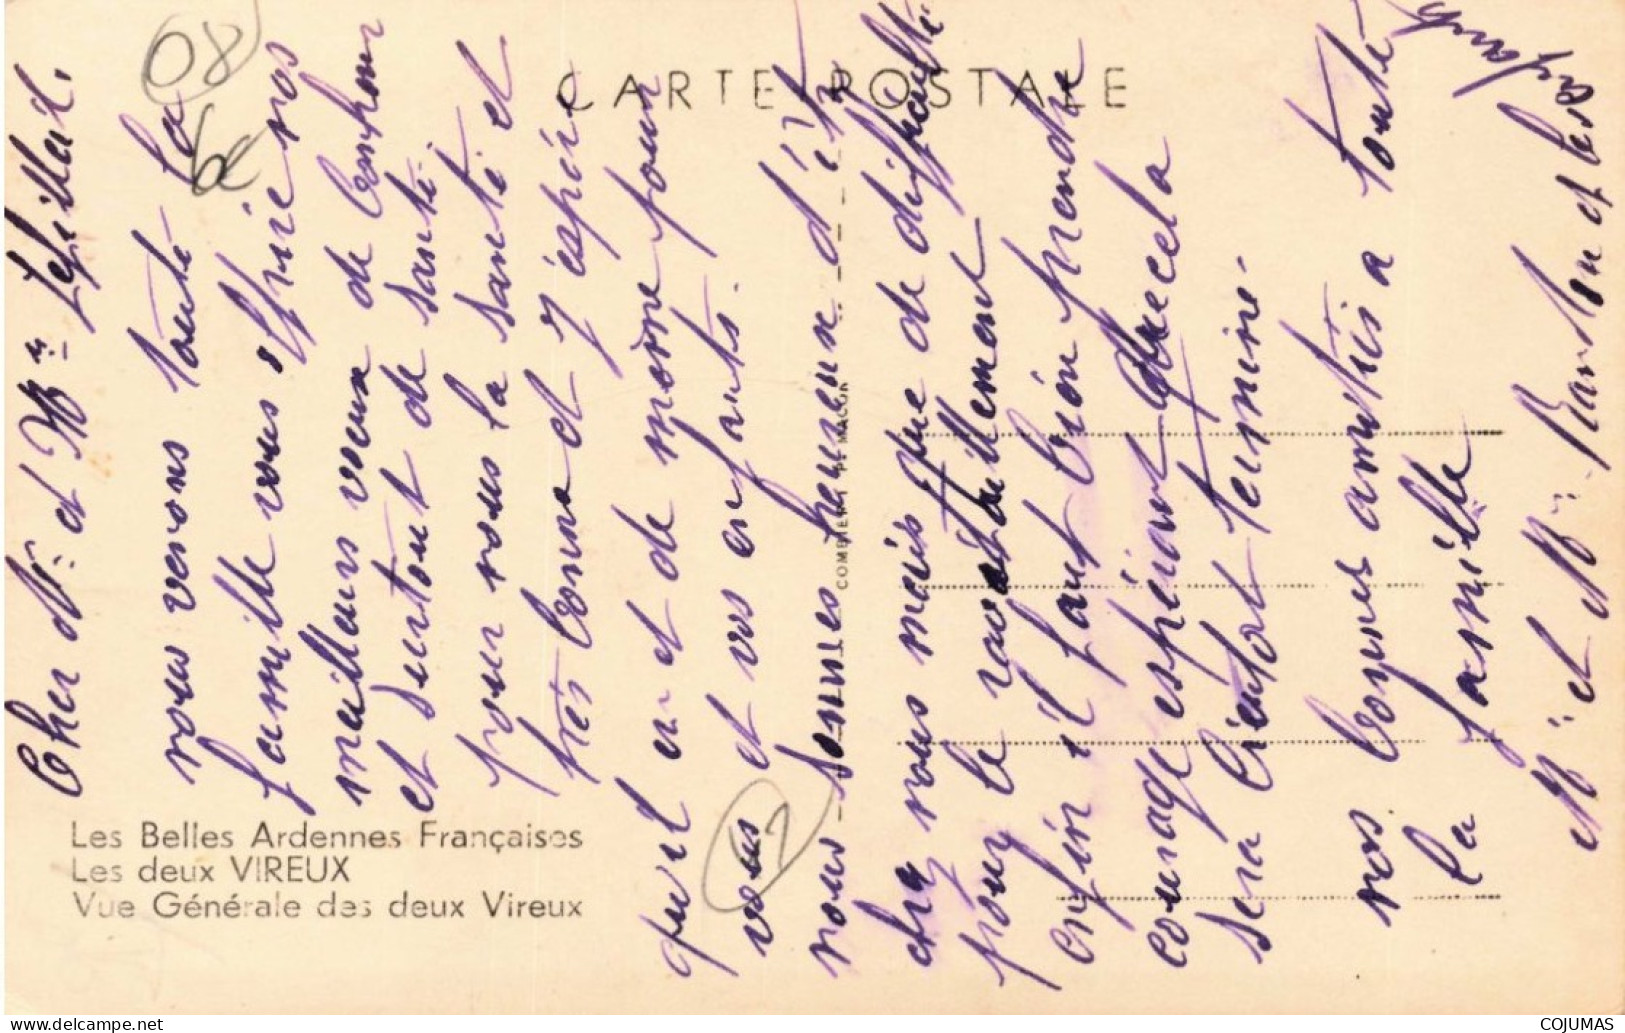 CARTE POSTALE
08
Cher Mr. et Mme
nous venons toute la
famille vous offrir nos
meilleurs voeux de bonheur
et surtout de santé.
pour nous la santé et
très bonne et j'éspère
qu'il en et de même pour
vous et vos enfants.
nous sommes heureux d'étre
chez nous mais que de difficulté
pour le ravitaillement
enfin il faut bien prendre
courage espérant que cela
sera bientot terminé.
nos bonnes amitiés a toute
la famille
Mr et Mme et les enfants
COMBIER IMP. MACON
Les Belles Ardennes Françaises
Les deux VIREUX
Vue Générale des deux Vireux
www.delcampe.net
COJUMAS